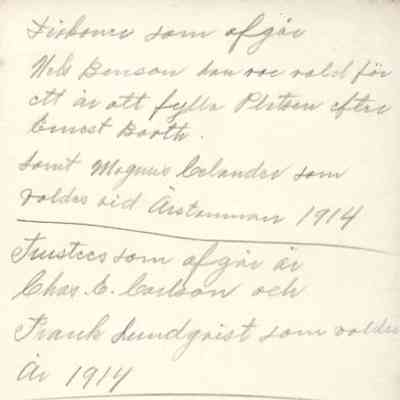 Diakoner som afgår
Nels Benson han var vald för
ett år att fylla Platsen efter
Ernest Booth.
samt Magnus Celander som
valdes vid Årstämman 1914
Trustees som afgår är
Chas. E. Carlson och
Frank Lundqvist som valdes
År 1914